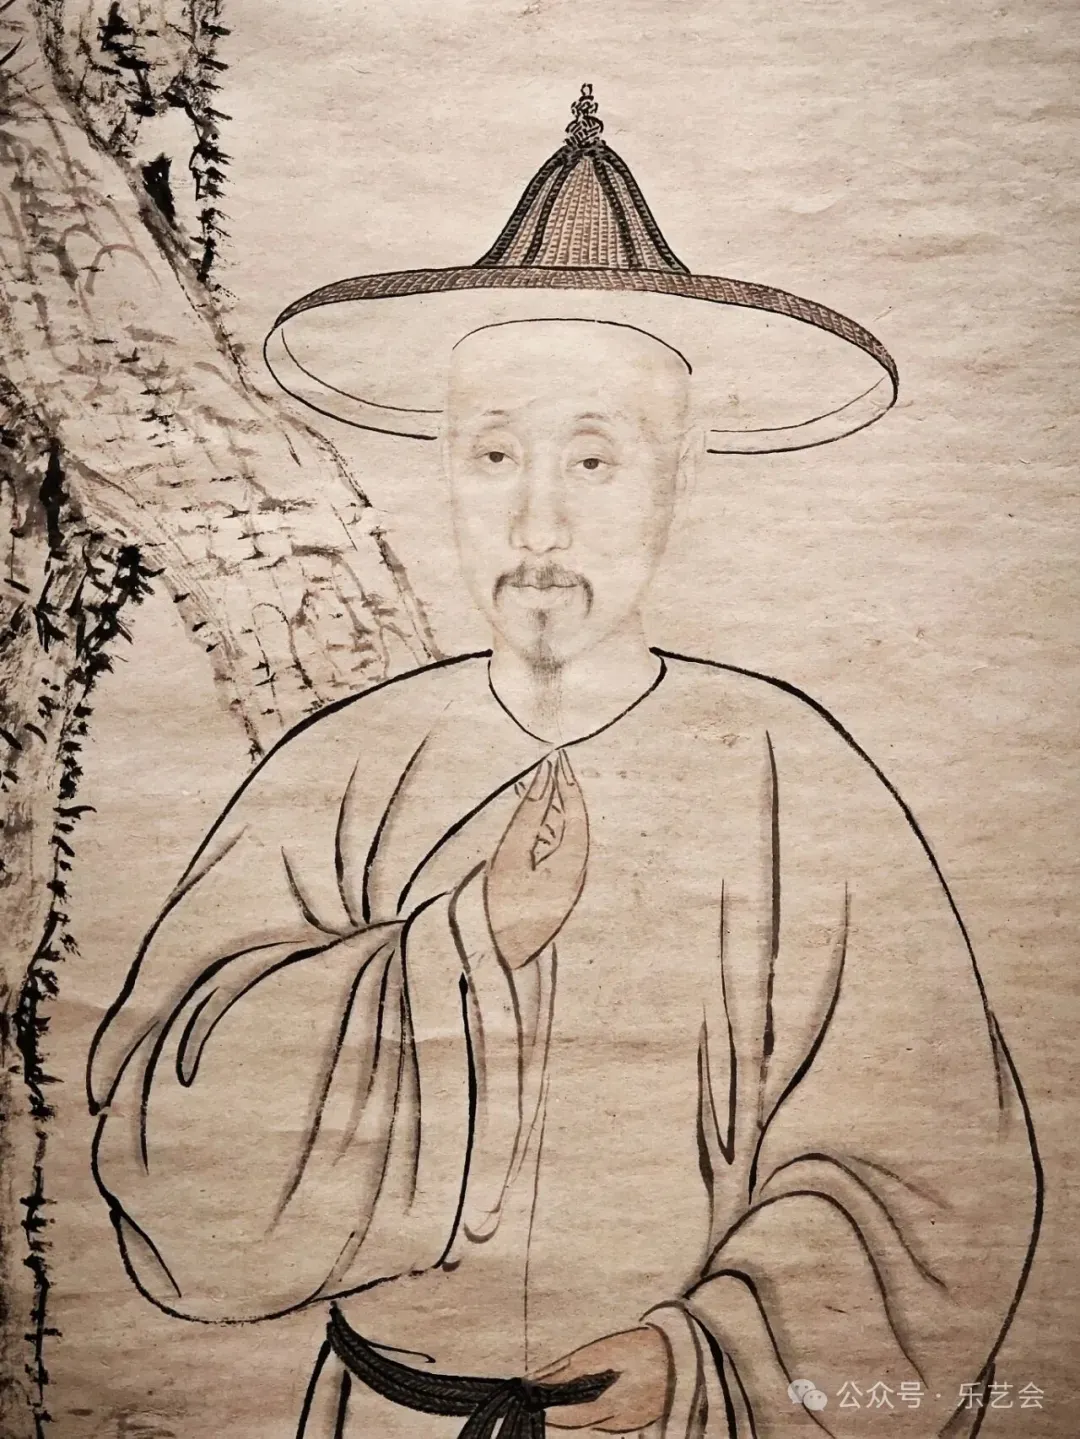 公众号·乐艺会